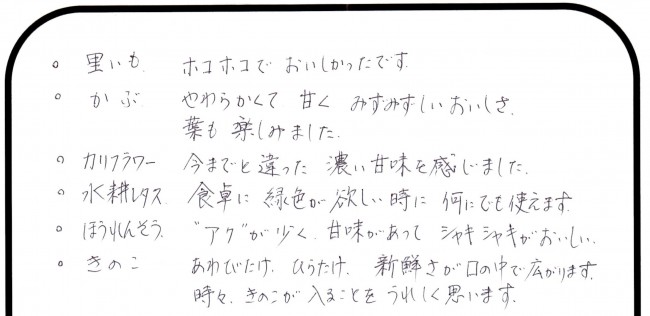 ○ 里いも ホコホコで おいしかったです。
○ かぶ やわらかくて 甘く みずみずしいおいしさ。
葉も 楽しみました。
○ カリフラワー 今までと違った 濃い甘味を感じました。
○ 水耕レタス 食卓に 緑色が欲しい時に 何にでも使えます。
○ ほうれんそう "アク"が少く、甘味があって シャキシャキがおいしい。
○ きのこ あわびたけ、ひらたけ、新鮮さが口の中で広がります。
時々、きのこが入ることを うれしく思います。